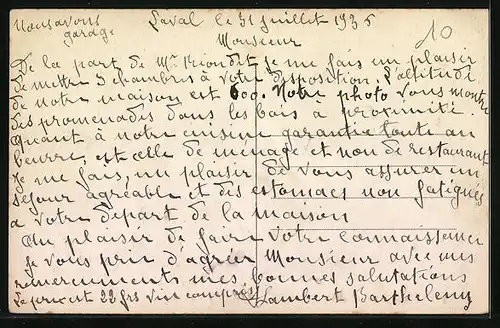 Nous avons garage
Laval le 31 juillet 1935
10
Monsieur
De la part de Mr je me fais un plaisir
de mettre 3 chambres à votre disposition. L'altitude
de notre maison est 600. Notre photo vous montre
des promenades dans les bois à proximité.
Quant à notre cuisine garantie toute au
beurre, est celle de ménage et non de restaurant
Je me fais, un plaisir de vous assurer un
séjour agréable et des estomacs non fatigués
a votre départ de la maison
Au plaisir de faire votre connaissance
je vous prie d'agréer Monsieur avec mes
remerciements mes bonnes salutations
Le prix est 22 frs vin compris Lambert Barthelemy